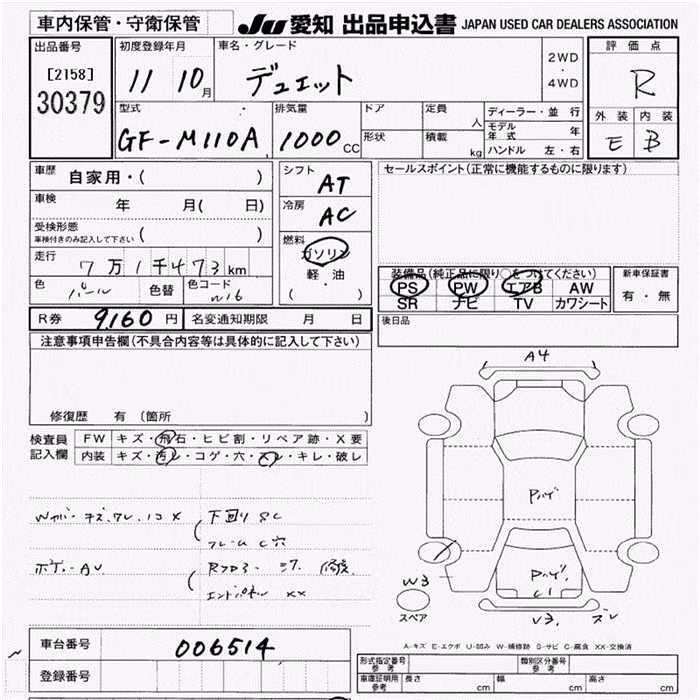 車内保管・守衛保管
JU 愛知 出品申込書 JAPAN USED CAR DEALERS ASSOCIATION
出品番号
[2158]
30379
初度登録年月
11 10 月
車名・グレード
デュエット
2WD
・
4WD
評価点
R
外装 内装
E B
型式
GF-M110A
排気量
1000 CC
ドア
形状
定員
人
積載
kg
ディーラー・並行
モデル年式 年
ハンドル 左・右
車歴
自家用・( )
車検
年 月( 日)
受検形態
車検付きのみ記入して下さい ( )
走行
7万1千473km
色 パール 色替 色コード W16
シフト
AT
冷房
AC
燃料
ガソリン
軽・油
( ・ )
セールスポイント(正常に機能するものに限ります)
装備品(純正品に限り○をつけてください)
PS PW エアB AW
SR ナビ TV カワシート
新車保証書
有・無
R券 9,160 円 名変通知期限 月 日
後日品
注意事項申告欄(不具合内容等は具体的に記入して下さい)
修復歴 有 (箇所 )
検査員記入欄
FW キズ・飛石・ヒビ割・リペア跡・X要
内装 キズ・汚レ・コゲ・穴・スレ・キレ・破レ
下回り SC
フレーム C穴
ボデー AU
修復
エンドパネル XX
A4
W3
C1
V3
スレ
スペア
A-キズ E-エクボ U-凹み W-補修跡 S-サビ C-腐食 XX-交換済
車台番号 006514
登録番号
形式指定番号 参考
類別区分番号 参考
車庫証明用 参考 長さ cm 幅 cm 高さ cm